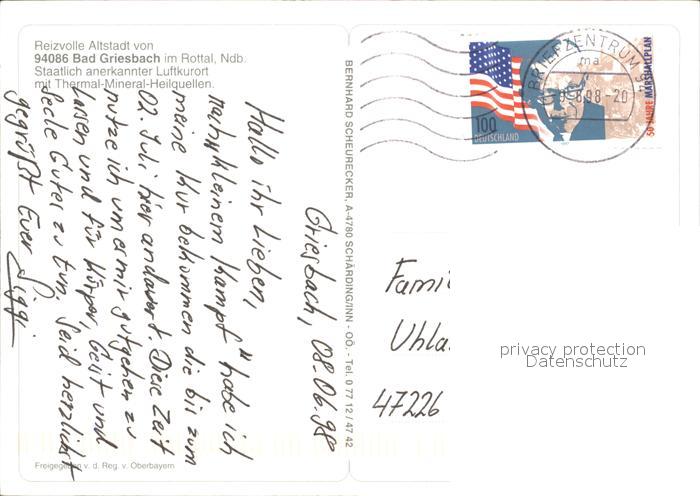 Reizvolle Altstadt von
94086 Bad Griesbach im Rottal, Ndb.
Staatlich anerkannter Luftkurort
mit Thermal-Mineral-Heilquellen.
Griesbach, 08.06.98
Hallo ihr Lieben,
nach „kleinem Kampf" habe ich
meine Kur bekommen die bis zum
02. Juli hier andauert. Diese Zeit
nutze ich um er mir gutgehen zu
lassen und für Körper, Geist und
Seele Gutes zu tun. Seid herzlichst
gegrüßt Euer Siggi
BERNHARD SCHEURECKER, A-4780 SCHÄRDING/INN - OÖ. - Tel. 0 77 12 / 47 42
BRIEFZENTRUM 94
ma
.8.98-20
100
DEUTSCHLAND
50 JAHRE MARSHALLPLAN
Famil
Uhla
47226
privacy protection
Datenschutz
Freigegeben v. d. Reg. v. Oberbayern